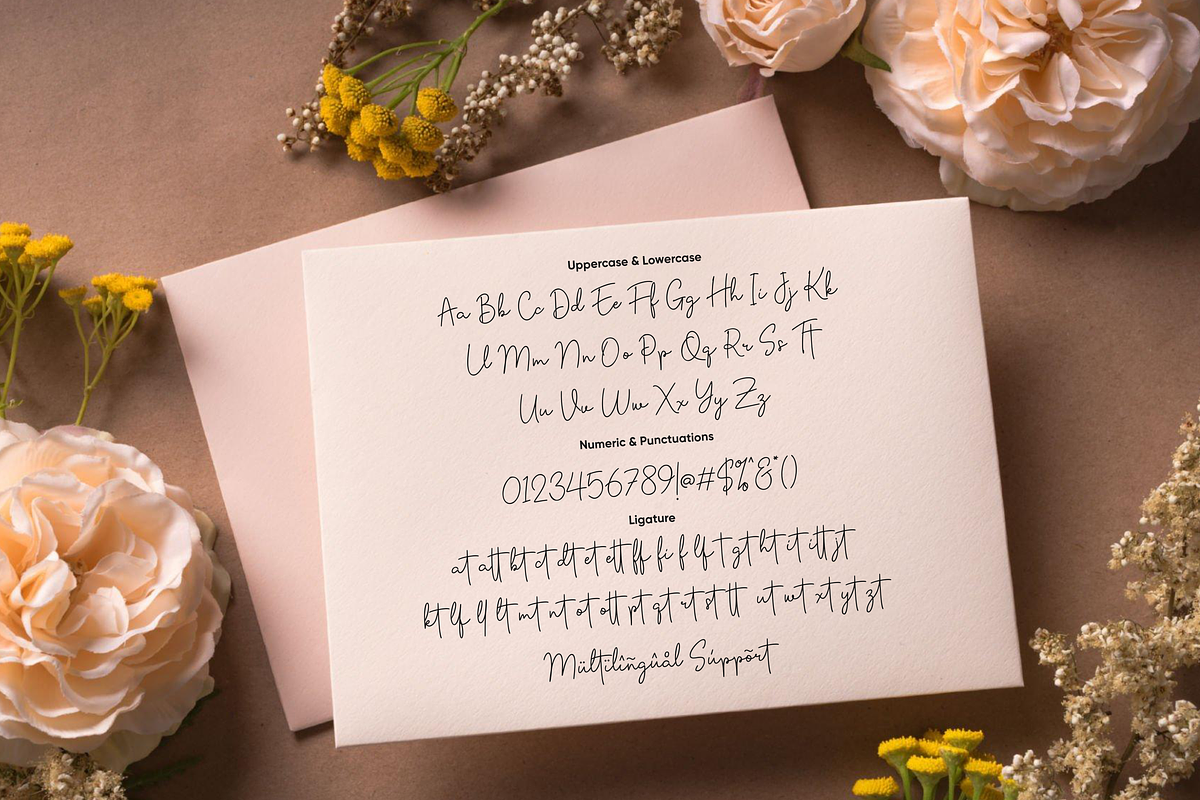 Uppercase & Lowercase
Aa Bb Cc Dd Ee Ff Gg Hh Ii Jj Kk
Ll Mm Nn Oo Pp Qq Rr Ss Tt
Uu Vv Ww Xx Yy Zz
Numeric & Punctuations
0123456789!@#$%^&*()
Ligature
at att bt ct dt et ett ff fi f lf t gt ht it itt jt
kt lf ll lt mt nt ot ott pt qt rt st tt ut wt xt yt zt
Mültïlîñgûål Súppõrt